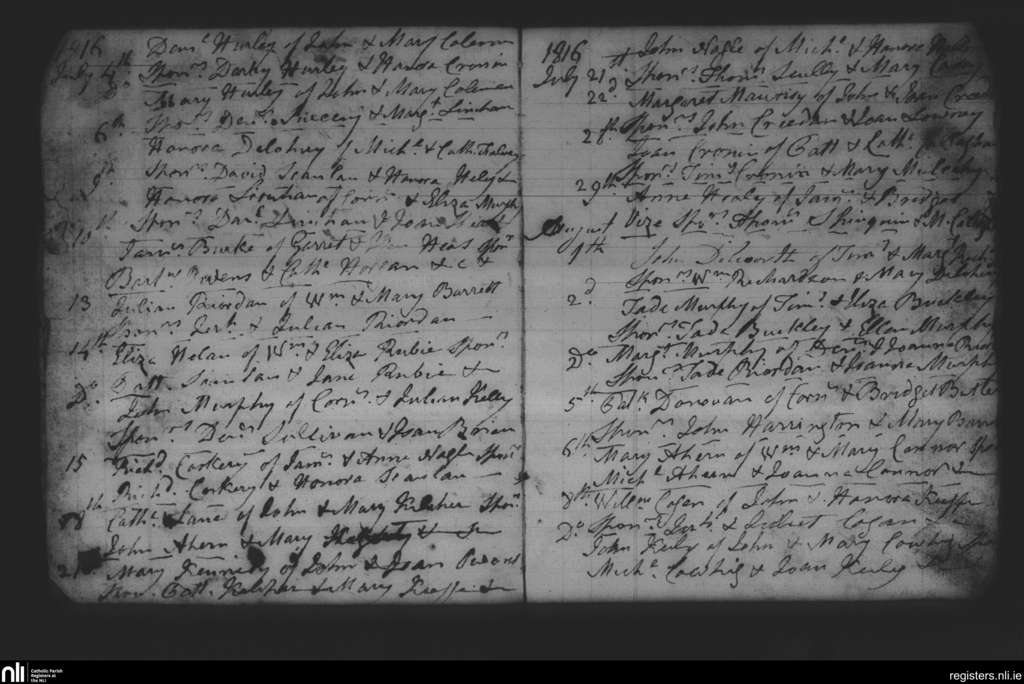 1816
July 4th Denis Hurley of John & Mary Colem
Sponrs Darby Hurley & Hanora Cronin
Mary Hurley of John & Mary Coleman
6th Sponrs Den. Sweeny & Margt Linehan
Honora Delohry of Michl & Cath.
Sponrs David Scanlan & Honora Hely &
Honora Linehan of Corns & Eliza Murphy
Sponrs Danl Linehan & Joan
James Burke of Garret & Heas Sponrs
Bartw Bowens & Cathe &c &
13 Julian Riordan of Wm & Mary Barrett
Sponrs Jerh & Julian Riordan
14th Eliza Nelan of Wm & Eliza Rubie Sponrs
Patt. Scanlan & Jane Rubie &
Do John Murphy of Corns & Julian Kelley
Sponrs Denis Sullivan & Joan
15 Richd Corkery of James & Anne Nagle Sponrs
Richd. Corkery & Honora Scanlan
18th Cathe Lane of John & Mary Keleher Sponrs
John Ahern & Mary &
21 Mary Kennedy of John & Joan
Sponrs Patt. Keleher & Mary Keeffe &
1816 John Nagle of Michl & Hanora
July 21 Sponrs Thomas Scully & Mary Casey
22d Margaret of John & Joan Creed
Sponrs John Creedan & Joan Lowney
28th Joan Cronin of Patt & Cath.
Sponrs Timy Cronin & Mary Mulcahy
29th Anne Healy of Jams & Bridget
August Vize Sponrs Thoms & M.
1th John Dilworth of Timy & Mary
Sponrs Wm Richardson & Mary
2d Tade Murphy of Timy & Eliza Buckley
Sponrs Tade Buckley & Ellen Murphy
Do Margt Murphy of Denis & Joanna Rior
Sponrs Tade Riordan & Joanna Murphy
5th Patk Donovan of Corns & Bridget
Sponrs John Harrington & Mary
6th Mary Ahern of Wm & Mary Connor Spo
Michl Ahern & Joanna Connor &
8th Willm Cogan of John & Hanora Keeffe
Sponrs Jerh & Cogan &
Do John Kiely of John & Mary Cowhig
Michl Cowhig & Joan Kiely
nli
Catholic Parish
Registers at
the NLI
registers.nli.ie